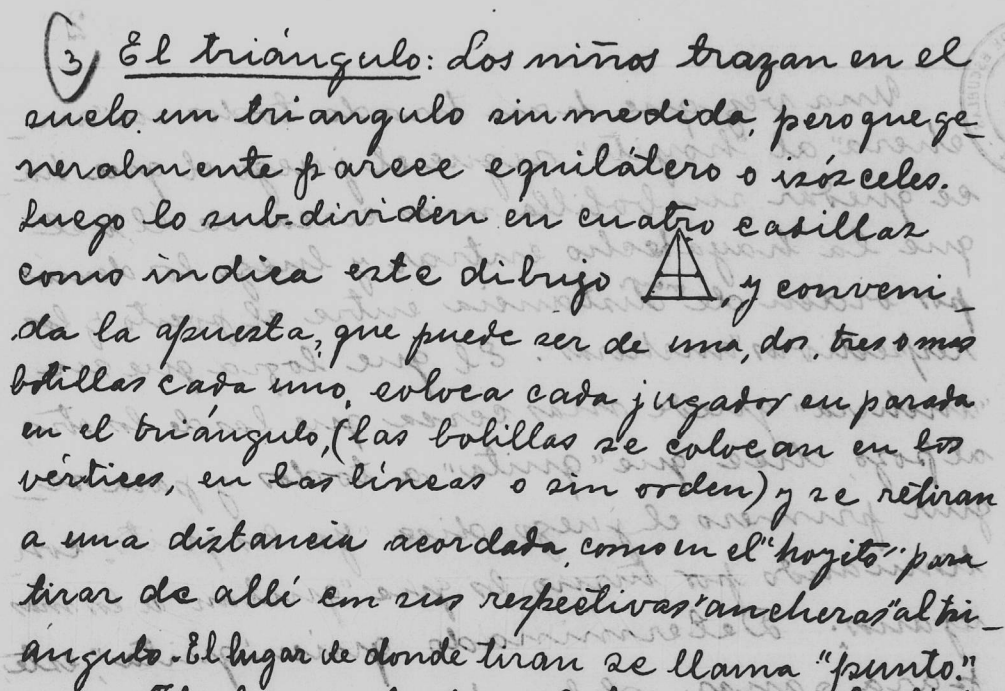 3) El triángulo: Los niños trazan en el
suelo un triangulo sin medida, pero que ge_
neralmente parece equilátero o isósceles.
Luego lo sub-dividen en cuatro casillas
como indica este dibujo , y conveni_
da la apuesta, que puede ser de una, dos, tres o mas
bolillas cada uno, coloca cada jugador su parada
en el triángulo, (las bolillas se colocan en los
vértices, en las líneas o sin orden) y se retiran
a una distancia acordada como en el "hoyito" para
tirar de allí con sus respectivas "ancheras" al tri_
ángulo. El lugar de donde tiran se llama "punto."